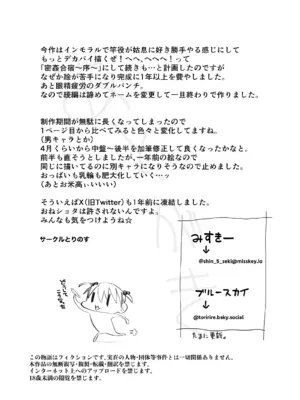 今作はインモラルで竿役が姑息に好き勝手やる感じにして
もっとデカパイ描くぜ！へへ、へへへ！って
「密姦合宿～序～」にして続きも…と計画したのですが
なぜか絵が苦手になり完成に1年以上を費やしました。
あと眼精疲労のダブルパンチ。
なので続編は諦めてネームを変更して一旦終わりで作りました。
制作期間が無駄に長くなってしまったので
1ページ目から比べてみると色々と変化してますね。
（男キャラとか）
4月くらいから中盤～後半を加筆修正して良くなったかなと。
前半も直そうとしましたが、一年前の絵なので
同じに描いてるのに別キャラになりそうなので止めました。
おっぱいも乳輪も肥大化していく…ッ
（あとお米高ぃいいい）
そういえばX（旧Twitter）も1年前に凍結しました。
おねショタは許されないんですよ。
みんなも気をつけような☆
サークルとりのす
みすきー
@shin_S_seki@misskey.io
ブルースカイ
@toririre.bsky.social
たまに更新。
この物語はフィクションです。実在の人物・団体等事件とは一切関係ありません。
本作品の無断複写・複製・転載・翻訳を禁じます。
インターネット上へのアップロードを禁じます。
18歳未満の閲覧を禁じます。